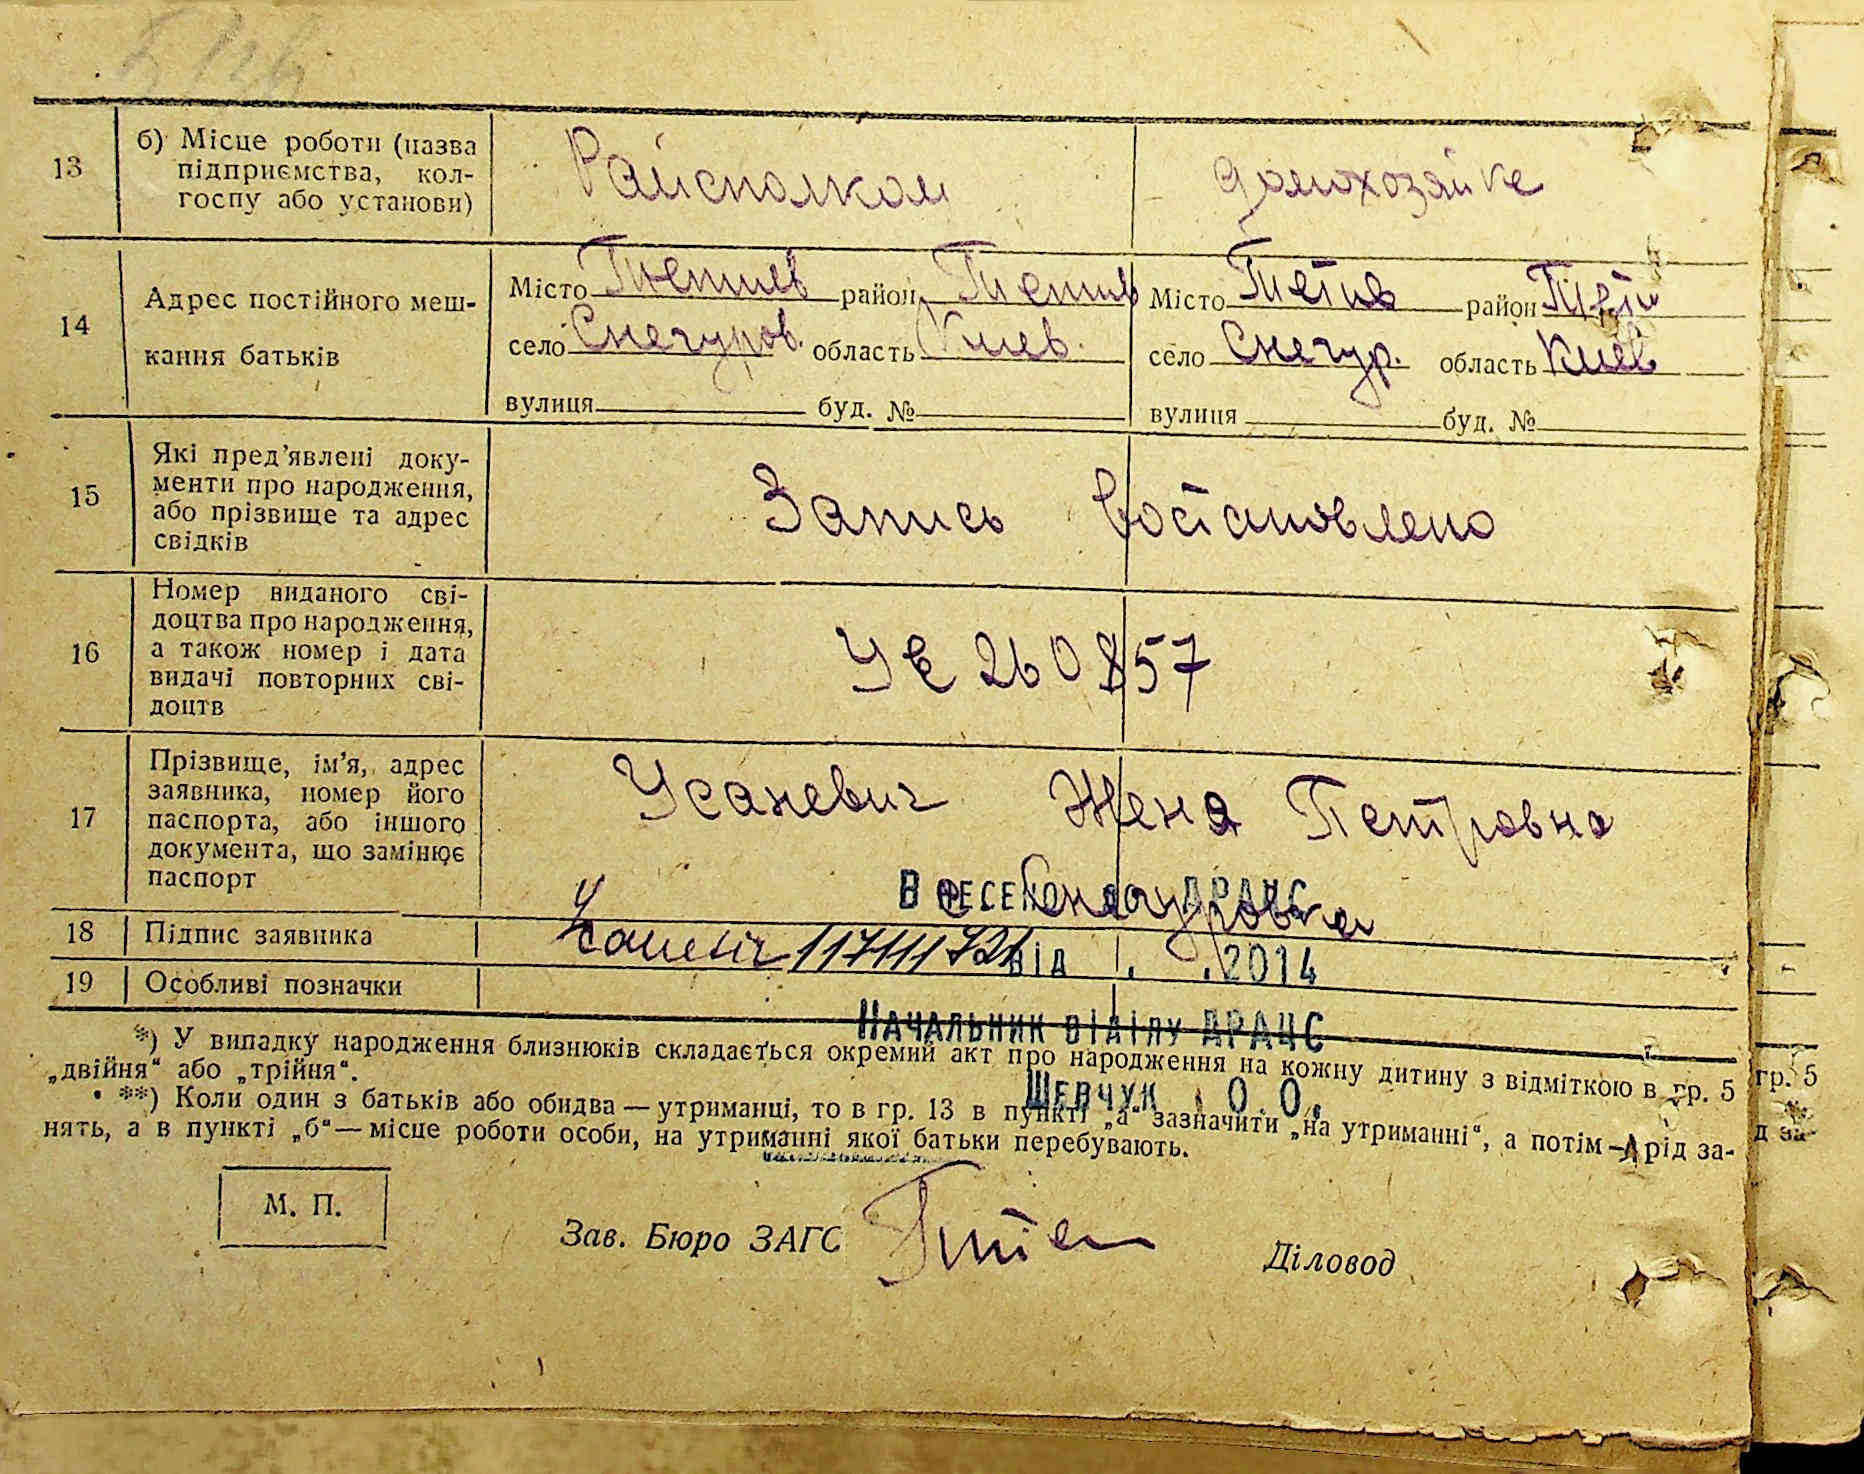 13 б) Місце роботи (назва
підприємства, кол-
госпу або установи)
Райсполком домохозяйке
14 Адрес постійного меш-
кання батьків
Місто Тетиев район Тетиев Місто Тетив район Тети
село Снегуров. область Киев. село Снегур. область Киев
вулиця буд. № вулиця буд. №
15 Які пред'явлені доку-
менти про народження,
або прізвище та адрес
свідків
Запись востановлено
16 Номер виданого сві-
доцтва про народження,
а також номер і дата
видачі повторних сві-
доцтв
УЕ 260857
17 Прізвище, ім'я, адрес
заявника, номер його
паспорта, або іншого
документа, що замінює
паспорт
Усаневич Женя Петровна
с Снегуровка
ВНЕСЕНО ДО ДРАЦС
18 Підпис заявника
від . .2014
19 Особливі позначки
НАЧАЛЬНИК ВІДІЛУ ДРАЦС
*) У випадку народження близнюків складається окремий акт про народження на кожну дитину з відміткою в гр. 5
„двійня“ або „трійня“.
ШЕВЧУК О.О.
**) Коли один з батьків або обидва — утриманці, то в гр. 13 в пункті „а“ зазначити „на утриманні“, а потім — рід за-
нять, а в пункті „б“ — місце роботи особи, на утриманні якої батьки перебувають.
М. П.
Зав. Бюро ЗАГС Діловод
гр. 5
д за-